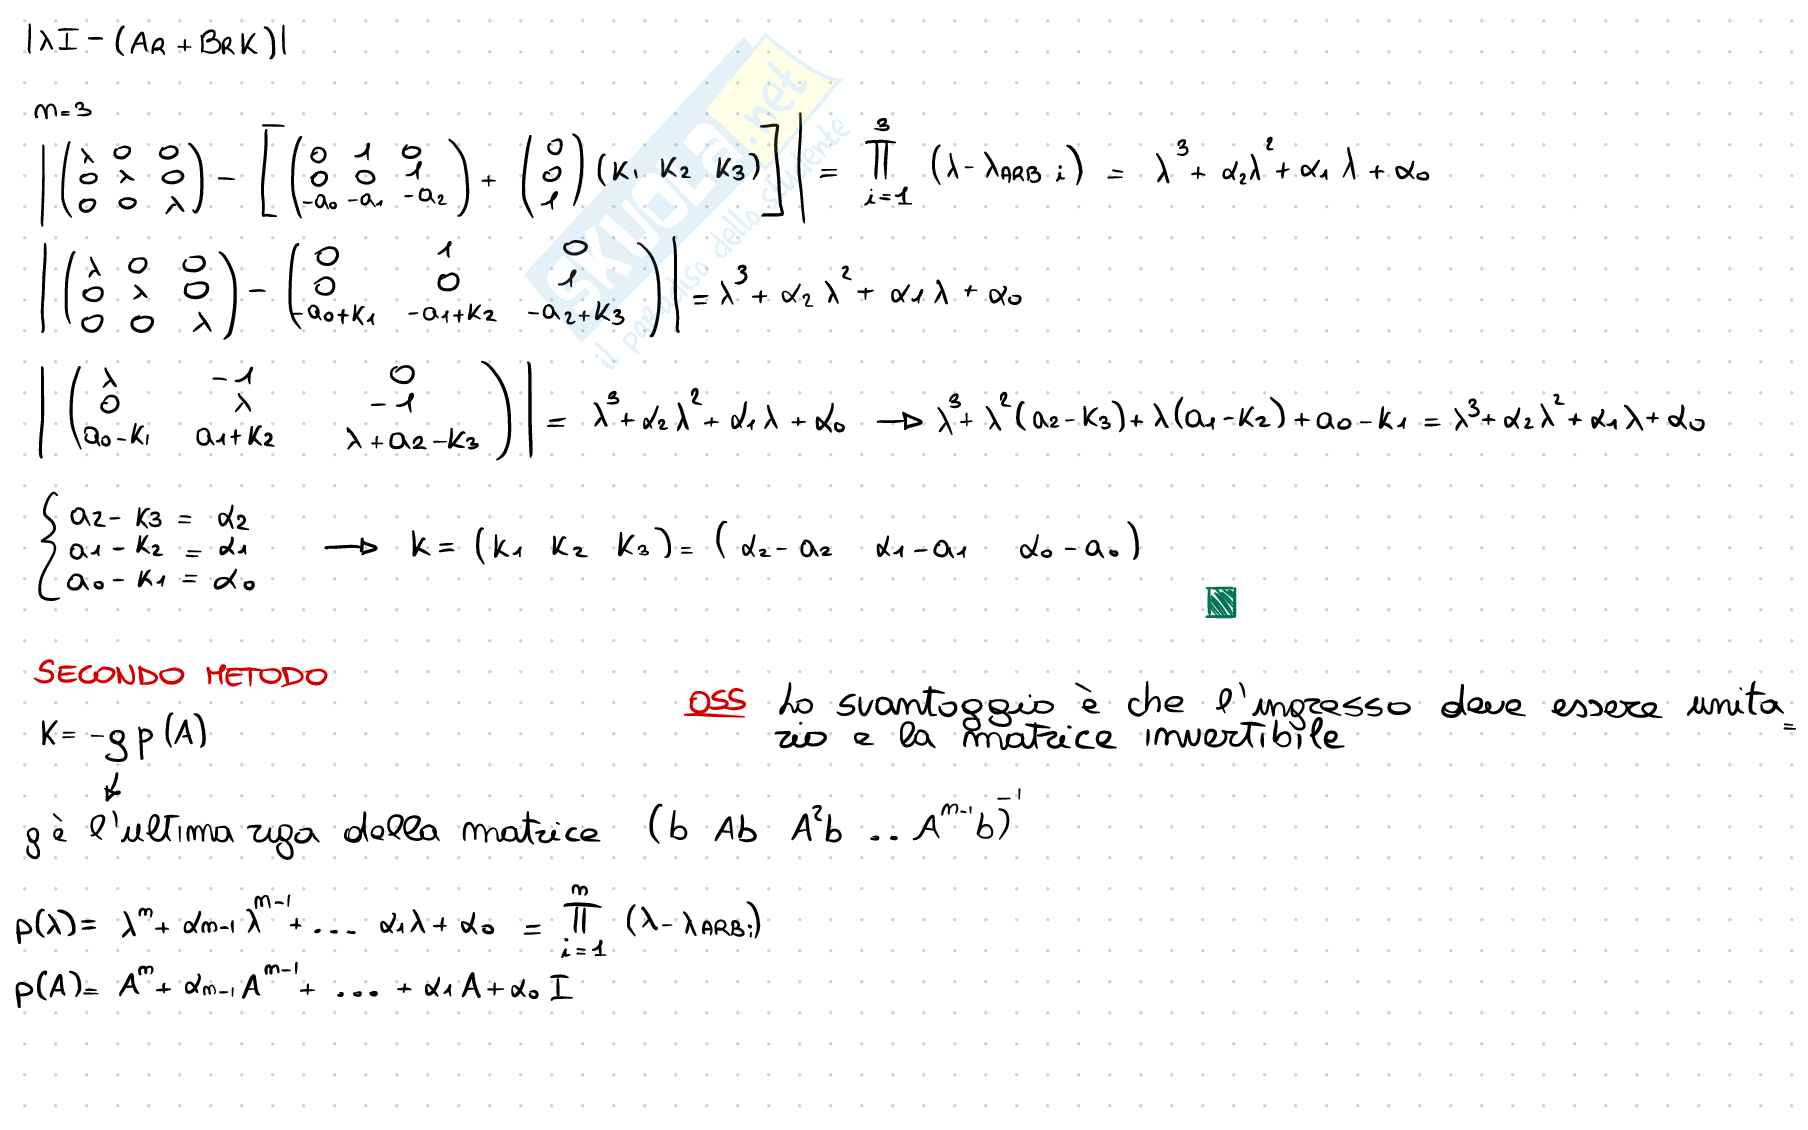 |λI - (AR + BRK)|
m=3
|(λ 0 0 / 0 λ 0 / 0 0 λ) - [(0 1 0 / 0 0 1 / -a0 -a1 -a2) + (0 / 0 / 1)(K1 K2 K3)]| = ∏ i=1 3 (λ-λARB i) = λ³ + α2λ² + α1 λ + α0
|(λ 0 0 / 0 λ 0 / 0 0 λ) - (0 1 0 / 0 0 1 / -a0+K1 -a1+K2 -a2+K3)| = λ³ + α2 λ² + α1 λ + α0
|(λ -1 0 / 0 λ -1 / a0-K1 a1+K2 λ+a2-K3)| = λ³ + α2 λ² + α1 λ + α0 → λ³ + λ²(a2-K3) + λ(a1-K2) + a0 - K1 = λ³ + α2λ² + α1λ + α0
{ a2 - K3 = α2
a1 - K2 = α1 → K = (K1 K2 K3) = (α2-a2 α1-a1 α0-a0)
a0 - K1 = α0
SECONDO METODO
OSS Lo svantaggio è che l'ingresso deve essere unita=
rio e la matrice invertibile
K = -g p(A)
↓
g è l'ultima riga della matrice (b Ab A²b .. A^{m-1}b)^{-1}
p(λ) = λ^m + αm-1 λ^{m-1} + ... α1λ + α0 = ∏ i=1 m (λ-λARBi)
p(A) = A^m + αm-1 A^{m-1} + ... + α1 A + α0 I
SKUOLA.net
il paradiso dello studente